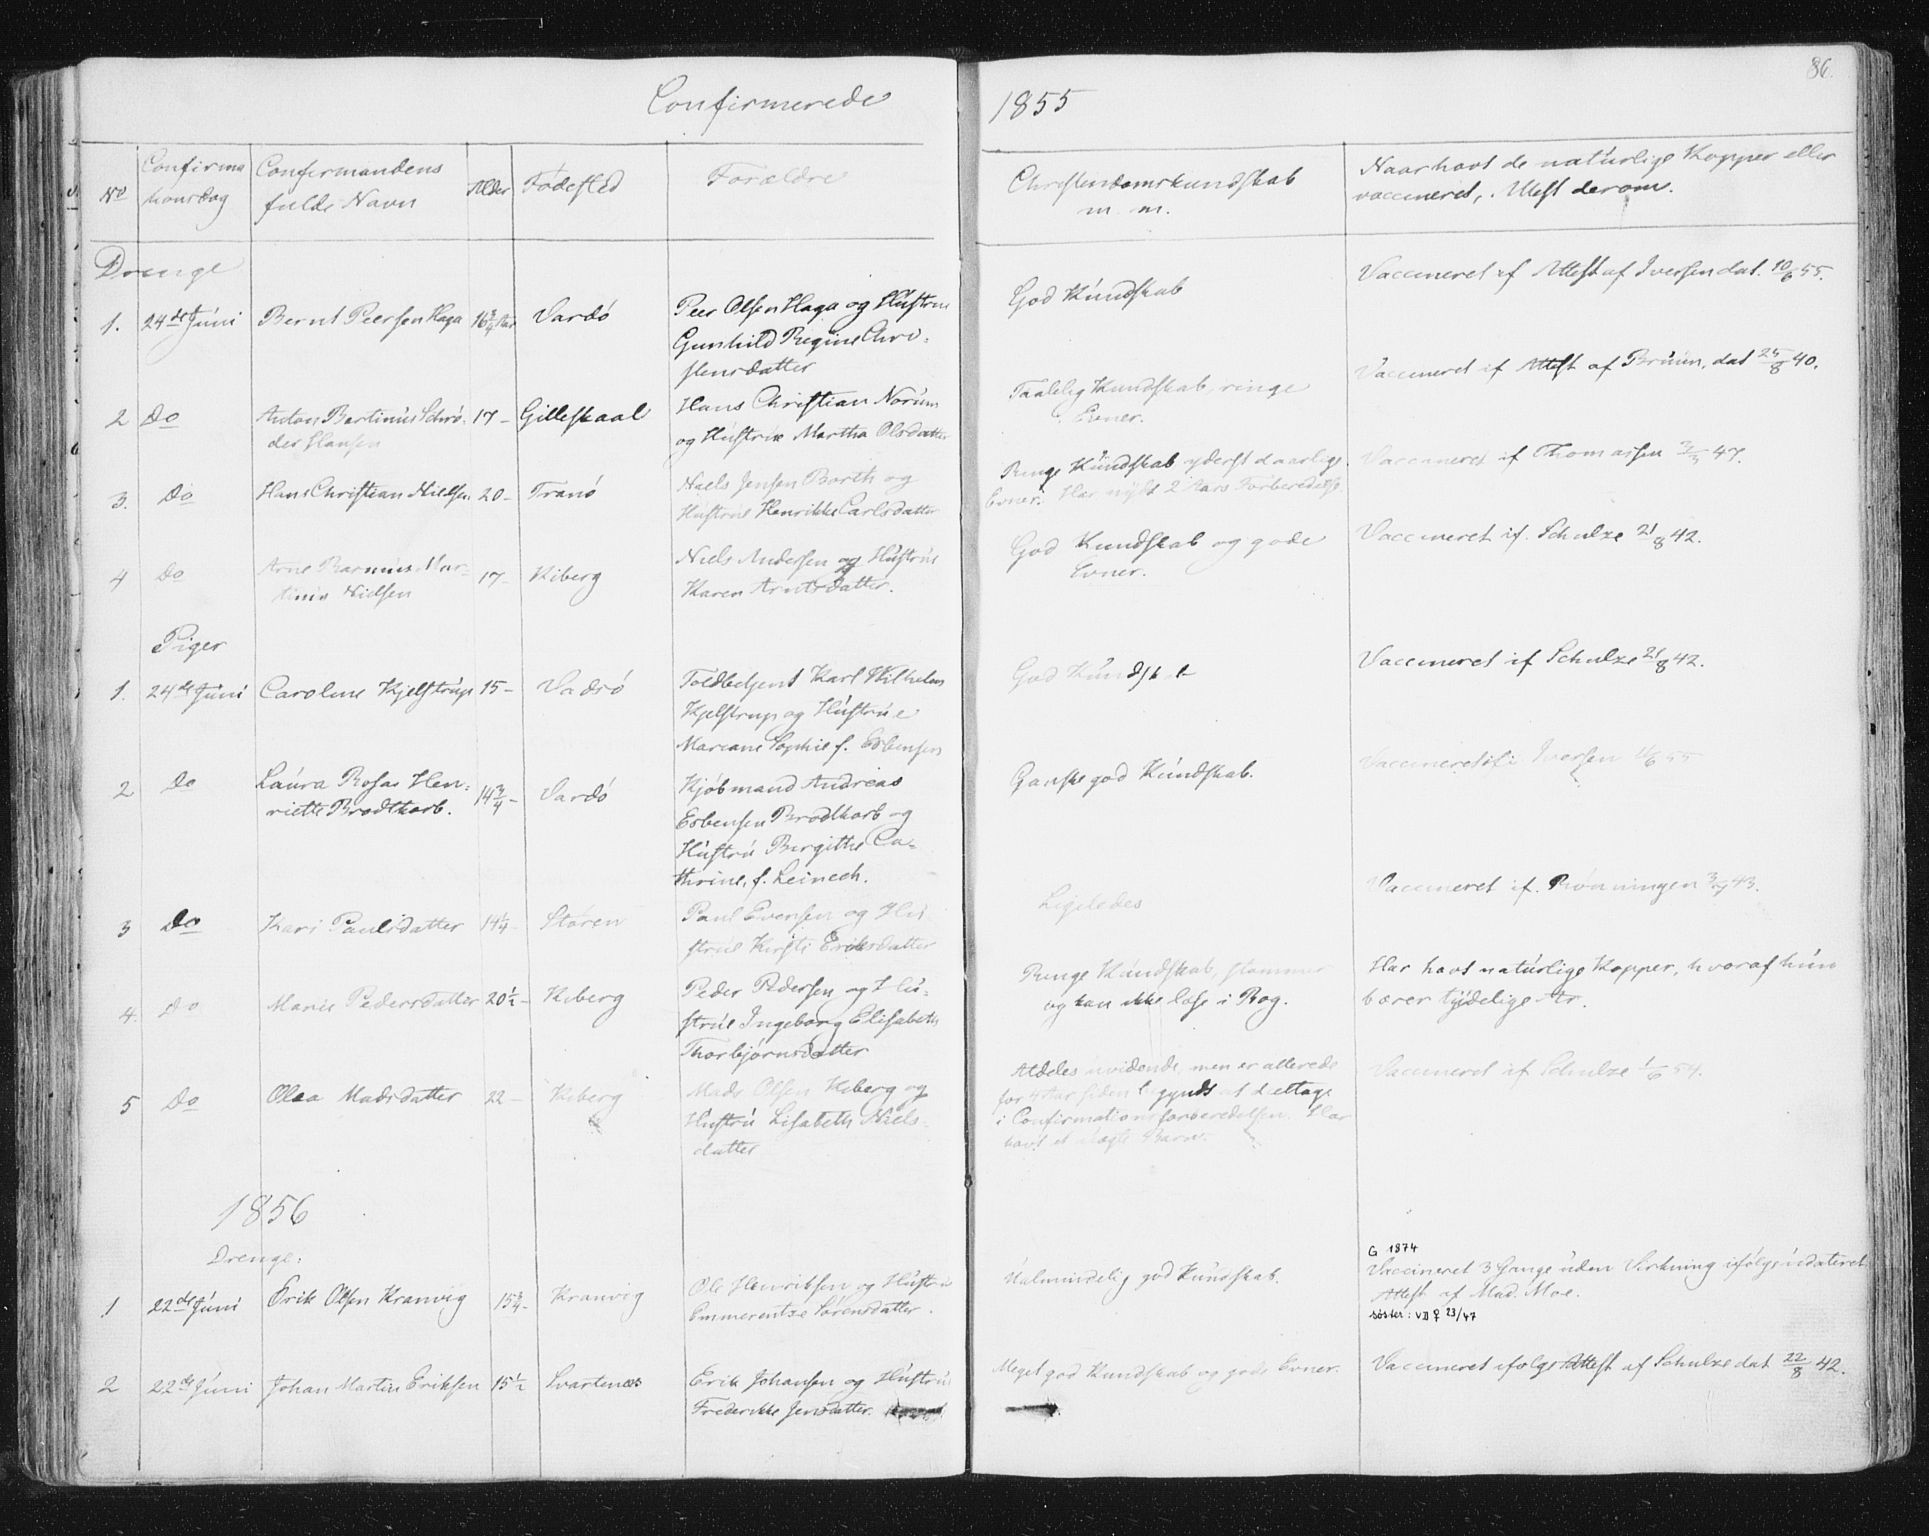 86.
Confirmerede 1855
No
Confirma
tionsdag
Confirmandens
fulde Navn
Alder
Fødested
Forældre
Christendomskundskab
m. m.
Naar havt de naturlige Kopper eller
vaccineret, Attest derom.
Drenge
1. 24de Juni Bernt Peersen Haga 16¾ Aar Vardö
Peer Olsen Haga og Hústrue
Gunhild Regine Chri-
stensdatter
God Kúndskab
Vaccineret if Attest af Iversen dat. 10/6 55.
2 Do Anton Bertinús Schrø-
der Hansen
17 - Gilleskaal
Hans Christian Norúm
og Hústrúe Martha Olsdatter
Taalelig Kundskab, ringe
Evner.
Vaccineret if Attest af Brúun, dat 25/8 40.
3. Do Hans Christian Nielsen 20 - Tranö
Niels Jensen Borth og
Hústrúe Henrikke Carlsdatter
Ringe Kúndskab yderst daarlige
Evner. Har nýdt 2 Aars Forberedelse
Vaccineret if Thomassen 3/3 47.
4 Do Arne Rasmus Mar-
tinius Nielsen
17 - Kiberg
Niels Andersen og Hústrúe
Karen Arntsdatter.
God Kundskab og gode
Evner.
Vaccineret if. Schulze 21/8 42.
Piger
1. 24de Júni Caroline Kjelstrúp 15 - Vadsö
Toldbetjent Karl Wilhelm
Kjelstrup og Hústrúe
Mariane Sophie f. Esbensen
God Kúndskab
Vaccineret if Schulze 21/8 42.
2 Do Laúra Rosas Hen-
riette Brodtkorb.
14¾ - Vardö
Kjöbmand Andreas
Esbensen Brodtkorb og
Hústrú Birgithe Ca-
thrine, f. Leinech.
Ganske god Kúndskab.
Vaccineret if. Iversen 11/6 55
3 Do Kari Paulsdatter 14¼ - Stören
Paul Evensen og Hú-
strúe Kirsti Eriksdatter
Ligeledes
Vaccineret if. Rönningen 3/7 43.
4. Do Marie Pedersdatter 20½ - Kiberg
Peder Pedersen og Hú-
strúe Ingeborg Elisabeth
Thorbjörnsdatter
Ringe Kúndskab, stammer
og kan ikke læse i Bog.
Har havt natúrlige Kopper, hvoraf hún
bærer týdelige Ar.
5 Do Olea Madsdatter 22 - Kiberg
Mads Olsen Kiberg og
Hústrú Lisabeth Niels-
datter
Aldeles uvidende, men er allerede
for 4 Aar siden begyndt at deltage
i Confirmationsforberedelsen. Har
havt et uægte Barn.
Vaccineret if Schulze 1/6 54.
1856
Drenge:
1 22de Júni Erik Olsen Kramvig 15¾ - Kramvig
Ole Henriksen og Hústrú
Emmerentze Sörensdatter.
Ualmindelig god Kúndskab.
G 1874
Vaccineret 3 Gange úden Virkning ifölge údateret
Attest af Mad. Moe.
søster: VII ♀ 23/47
2 22de Júni Johan Martin Eriksen 15½ Svartnæs
Erik Johansen og Hústrúe
Frederikke Jensdatter.
Meget god Kundskab og gode Evner.
Vaccineret ifolge Attest af Schulze dat 22/8 42.